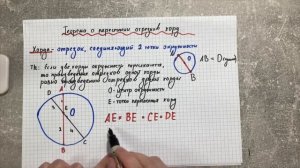 Теорема о пересечении отрезков хорд
Хорда - отрезок, соединяющий 2 точки окружности
AB = D
Тh: Если две хорды окружности пересекаются,
то произведение отрезков одной хорды
равно произведению отрезков другой хорды
O - центр окружности
E - точка пересечения хорд
AE • BE = CE • DE
A
D
E
O
B
C